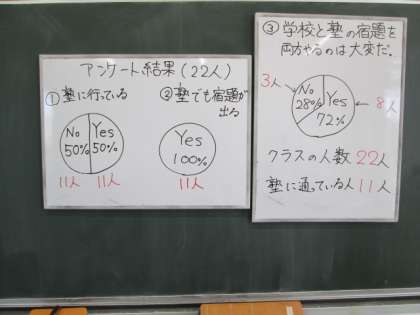 アンケート結果(22人)
①塾に行っている
No
50%
Yes
50%
11人 11人
②塾でも宿題が
出る
Yes
100%
11人
③学校と塾の宿題を
両方やるのは大変だ。
3人
No
28%
Yes
72%
8人
クラスの人数 22人
塾に通っている人 11人